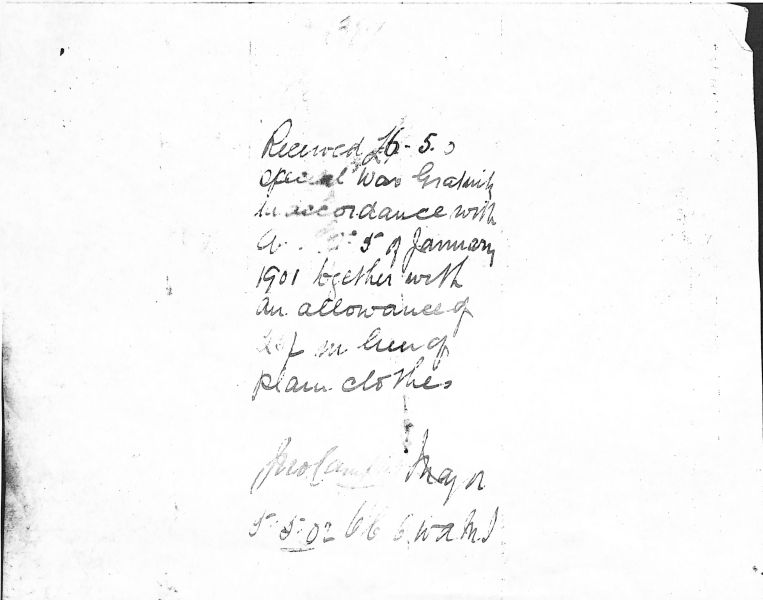 Received £6-5.0
special War Gratuity
in accordance with
5 of January
1901 together with
an allowance of
in lieu of
plain clothes
Major
5-5-02 6